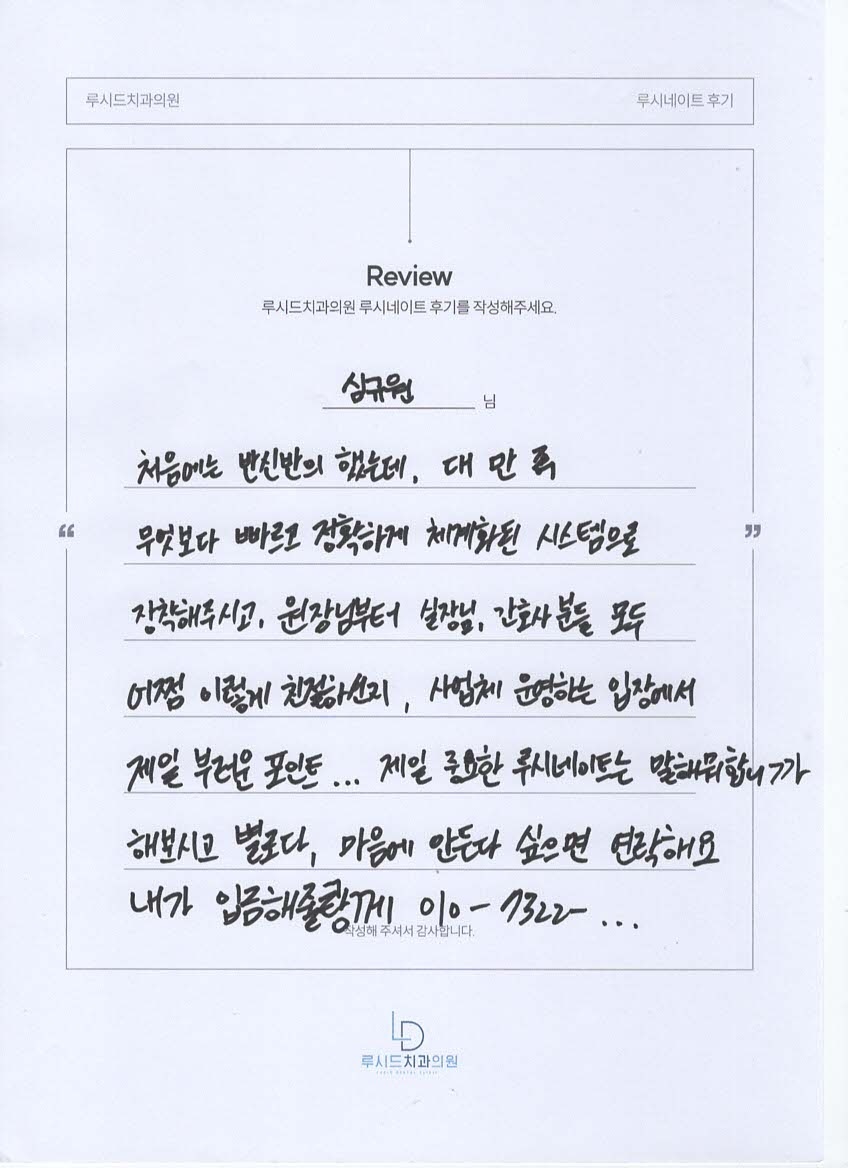 루시드치과의원 루시네이트 후기
Review
루시드치과의원 루시네이트 후기를 작성해주세요.
심규원 님
처음에는 반신반의 했는데, 대 만 족
무엇보다 빠르고 정확하게 체계화된 시스템으로
장착해주시고, 원장님부터 실장님, 간호사분들 모두
어쩜 이렇게 친절하신지, 사업체 운영하는 입장에서
제일 부러운 포인트... 제일 중요한 루시네이트는 말해뭐합니까
해보시고 별로다, 마음에 안든다 싶으면 연락해요
내가 입금해줄랑께 010-7322-...
작성해 주셔서 감사합니다.
LD
루시드치과의원